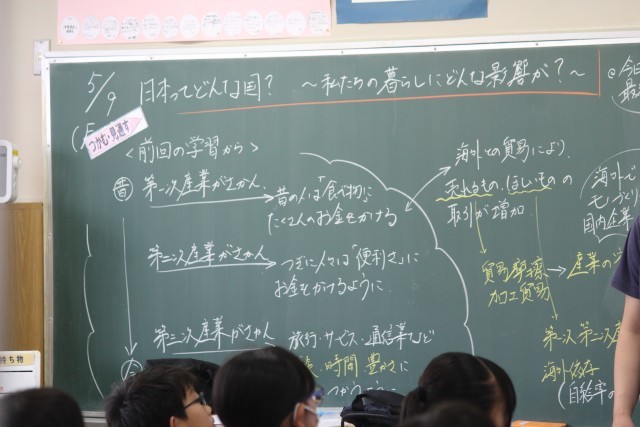 5/9 日本ってどんな国? 〜私たちの暮らしにどんな影響が?〜
つかむ・見通す
<前回の学習から>
昔 第一次産業がさかん
昔の人は「食べ物」に
たくさんのお金をかける
第二次産業がさかん
つぎに人々は「便利さ」に
お金をかけるように
第三次産業がさかん
旅行・サービス・通信業など
時間 豊かに
海外との貿易により
売れるもの、ほしいものの
取引が増加
貿易摩擦
加工貿易
産業の
第一次第二次
海外依存
(自給率の
@今日
海外で
モノづくり
国内企業
持ち物